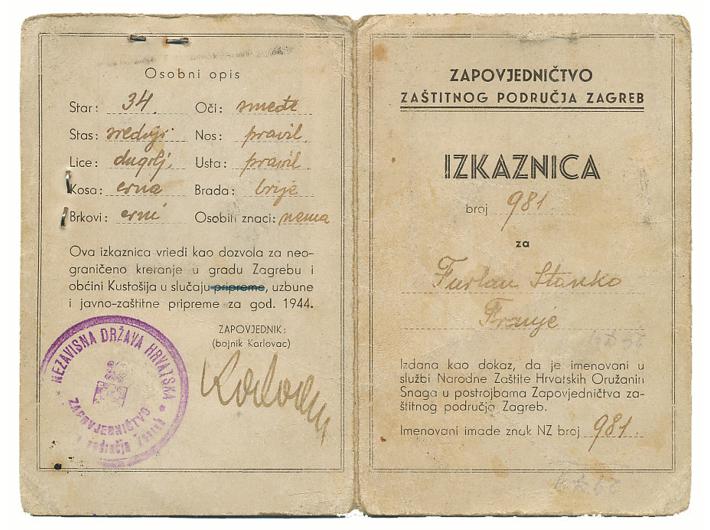 Osobni opis
Star: 34. Oči: smeđe
Stas: srednji Nos: pravil
Lice: dugolj. Usta: pravil
Kosa: crna Brada: brije
Brkovi: crni Osobiti znaci: nema
Ova izkaznica vriedi kao dozvola za neo-
graničeno kretanje u gradu Zagrebu i
obćini Kustošija u slučaju pripreme, uzbune
i javno-zaštitne pripreme za god. 1944.
ZAPOVJEDNIK:
(bojnik Karlovac)
NEZAVISNA DRŽAVA HRVATSKA
ZAPOVJEDNIČTVO
područja
ZAPOVJEDNIČTVO
ZAŠTITNOG PODRUČJA ZAGREB
IZKAZNICA
broj 981
za
Furlan Stanko
Franje
Izdana kao dokaz, da je imenovani u
službi Narodne Zaštite Hrvatskih Oružanih
Snaga u postrojbama Zapovjedničtva za-
štitnog područja Zagreb.
Imenovani imade znak NZ broj 981.